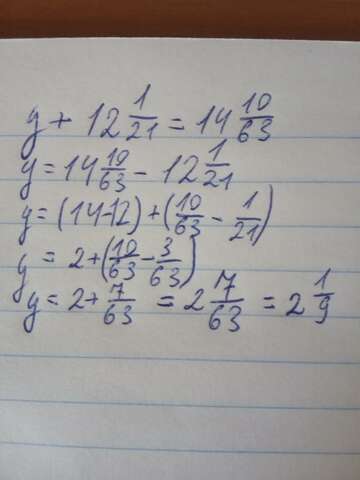 y + 12 1/21 = 14 10/63
y = 14 10/63 - 12 1/21
y = (14-12) + (10/63 - 1/21)
y = 2+(10/63 - 3/63)
y = 2+ 7/63 = 2 7/63 = 2 1/9